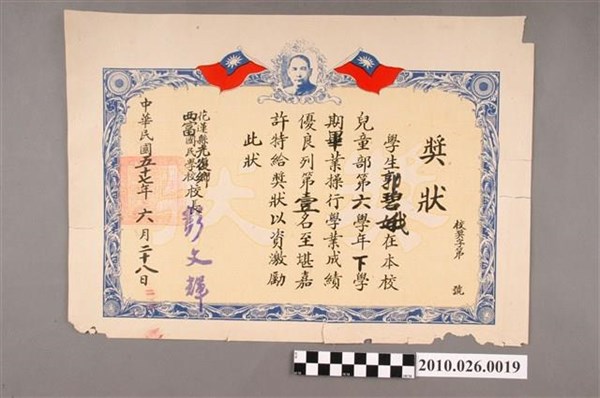 獎狀
校獎字第 號
學生郭碧娥在本校
兒童部第六學年下學
期畢業操行學業成績
優良列第壹名至堪嘉
許特給獎狀以資激勵
此狀
花蓮縣光復鄉
西富國民學校校長彭文輝
中華民國五十七年六月二十八日
2010.026.0019